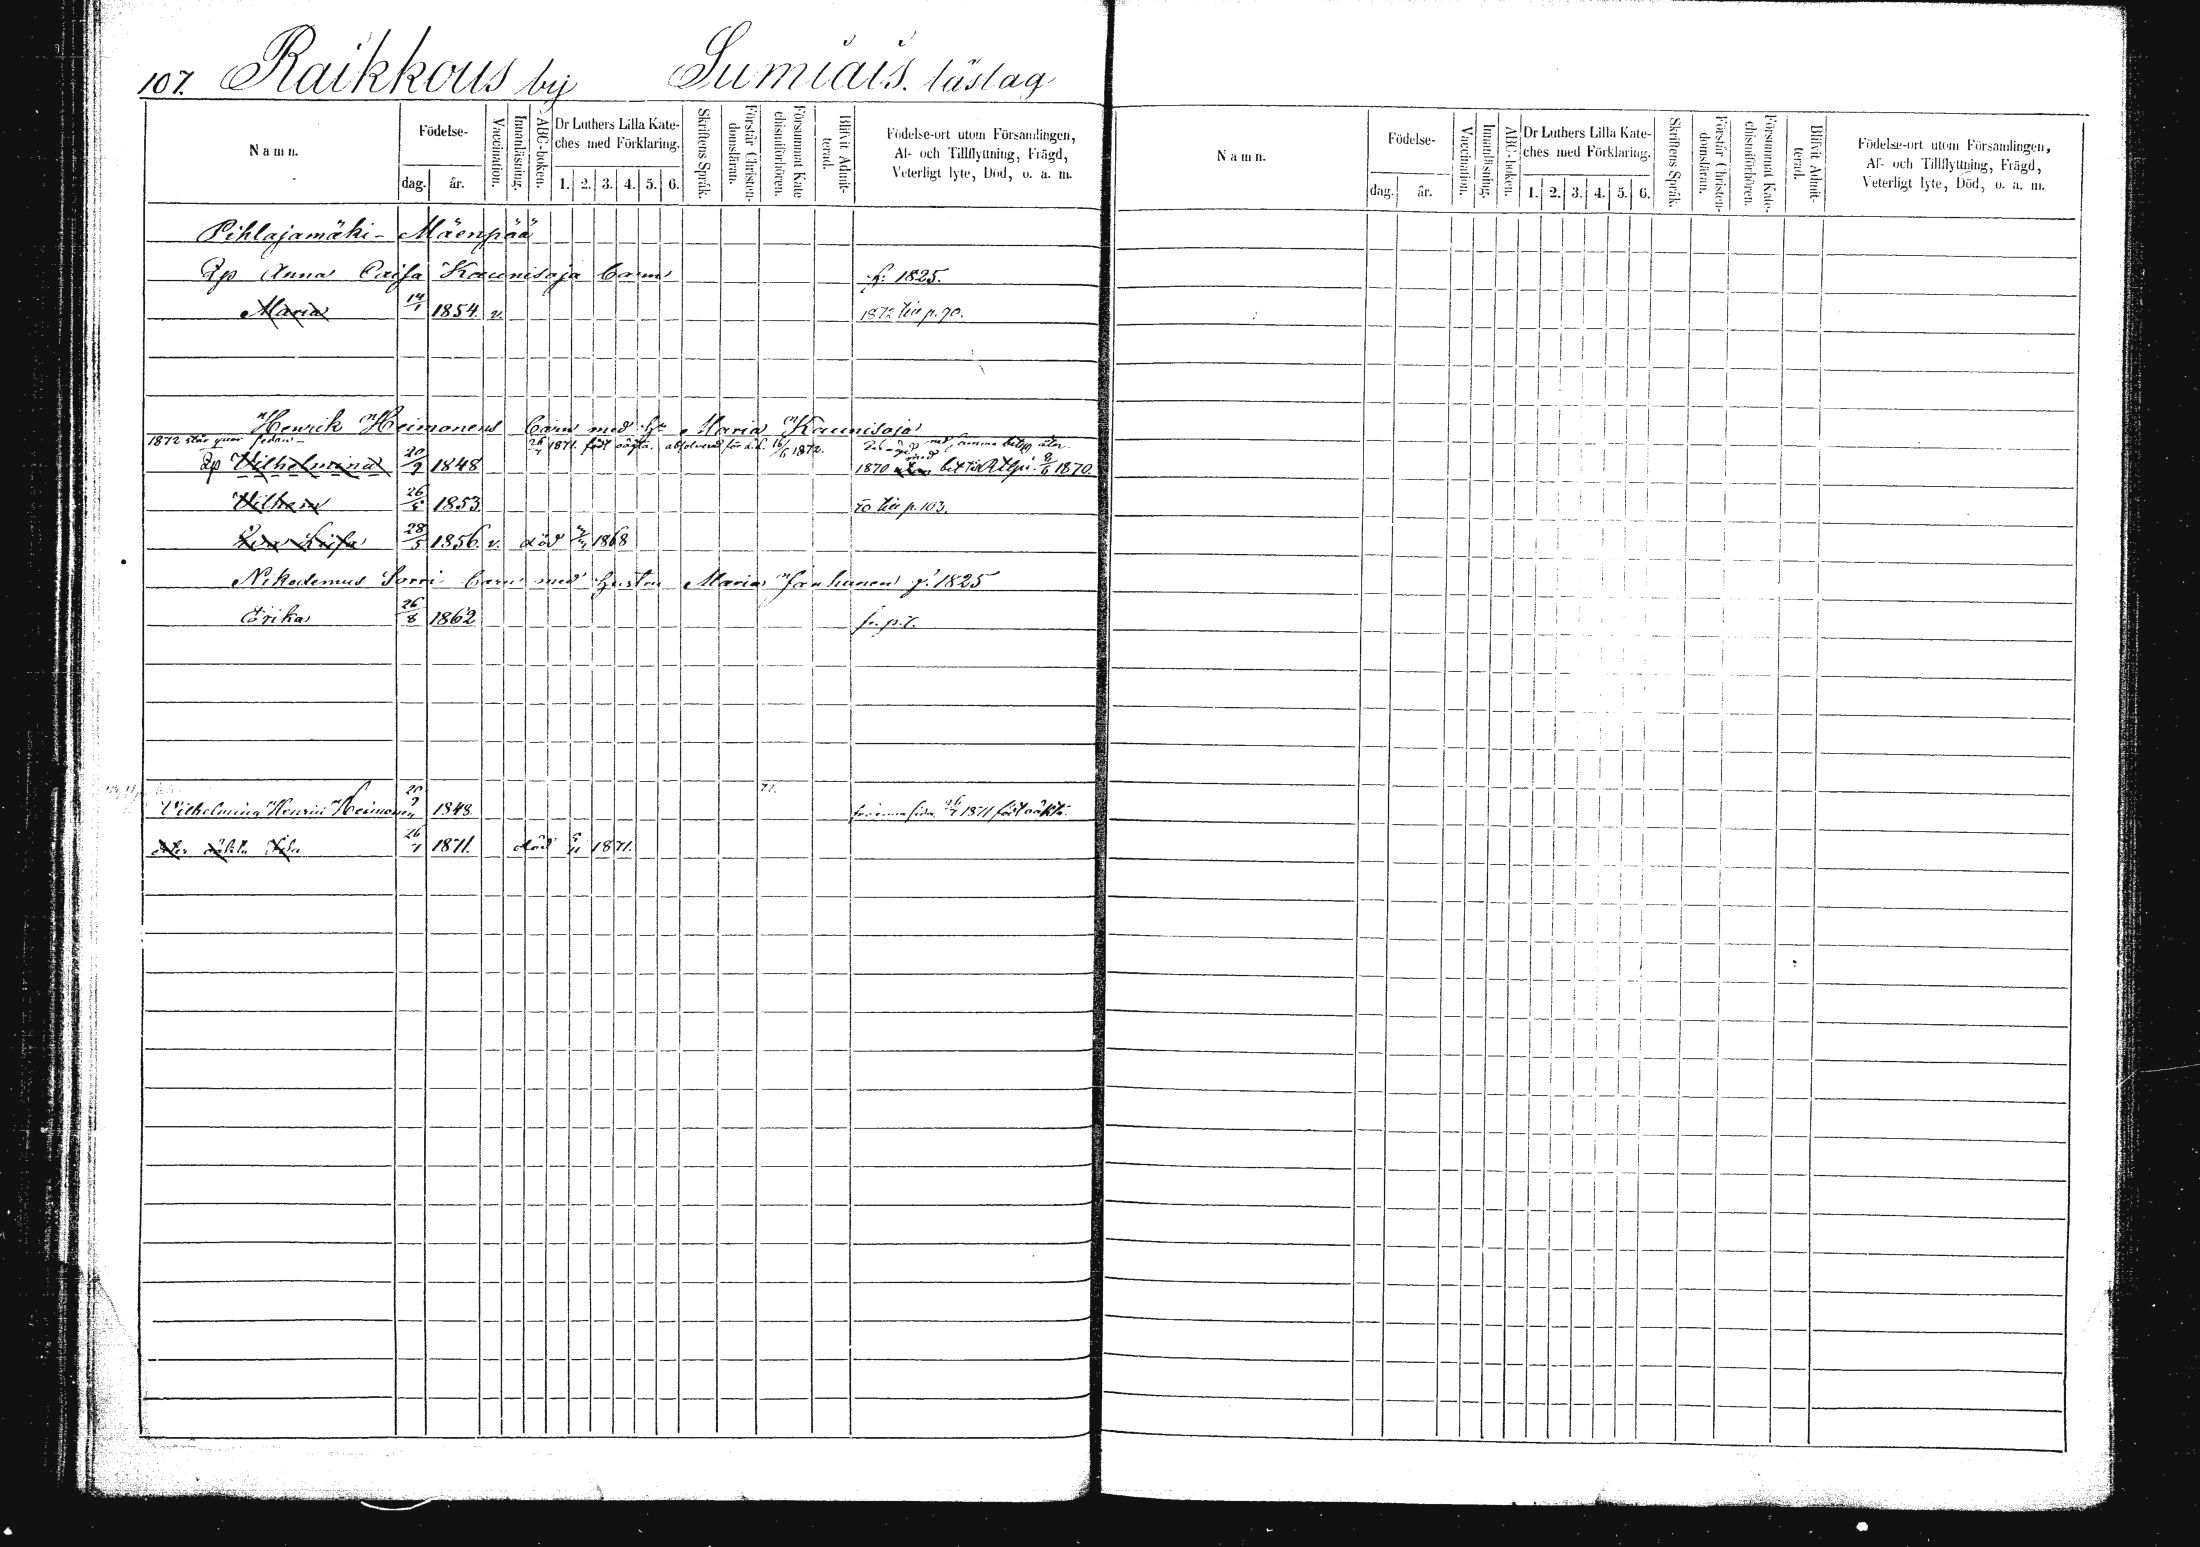 107. Raikkous by Sumiais. läslag
Namn. Födelse- dag. år. Vaccination. Innanläsning. ABC-boken. Dr Luthers Lilla Kate-ches med Förklaring. 1. 2. 3. 4. 5. 6. Skriftens Språk. Förstår Christen-domsläran. Försummat Kate-chismiförhören. Blifvit Admit-terad. Födelse-ort utom Församlingen, Af- och Tillflyttning, Frägd, Veterligt lyte, Död, o. a. m.
Pihlajamäki - Mäenpää
Anna Caisa Kaunisaja barn f: 1825.
Maria 14/1 1854. v. 1872 p. 90.
Henrik Heimonens barn med h. Maria Kaunisaja
1872 står quar sedan 26/7 1871 född oägta. 16/6 1872.
Wilhelmina 20/9 1848 1870 8/6 1870.
26 1853 70 p. 103.
28/5 1856. v. död 1868
Nikodemus Sorri barn med hustru Maria Janhunen f. 1825
Erika 26/8 1862 fr. p. 7.
Wilhelmina Henrici Heimonen 20/9 1848. 1871 född oäkta
26 1871. död 1871.
Namn. Födelse- dag. år. Vaccination. Innanläsning. ABC-boken. Dr Luthers Lilla Kate-ches med Förklaring. 1. 2. 3. 4. 5. 6. Skriftens Språk. Förstår Christen-domsläran. Försummat Kate-chismiförhören. Blifvit Admit-terad. Födelse-ort utom Församlingen, Af- och Tillflyttning, Frägd, Veterligt lyte, Död, o. a. m.